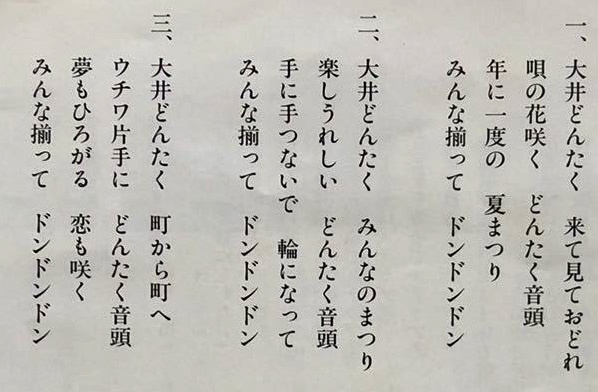 一、大井どんたく　来て見ておどれ
唄の花咲く　どんたく音頭
年に一度の　夏まつり
みんな揃って　ドンドンドン
二、大井どんたく　みんなのまつり
楽しうれしい　どんたく音頭
手に手つないで　輪になって
みんな揃って　ドンドンドン
三、大井どんたく　町から町へ
ウチワ片手に　どんたく音頭
夢もひろがる　恋も咲く
みんな揃って　ドンドンドン